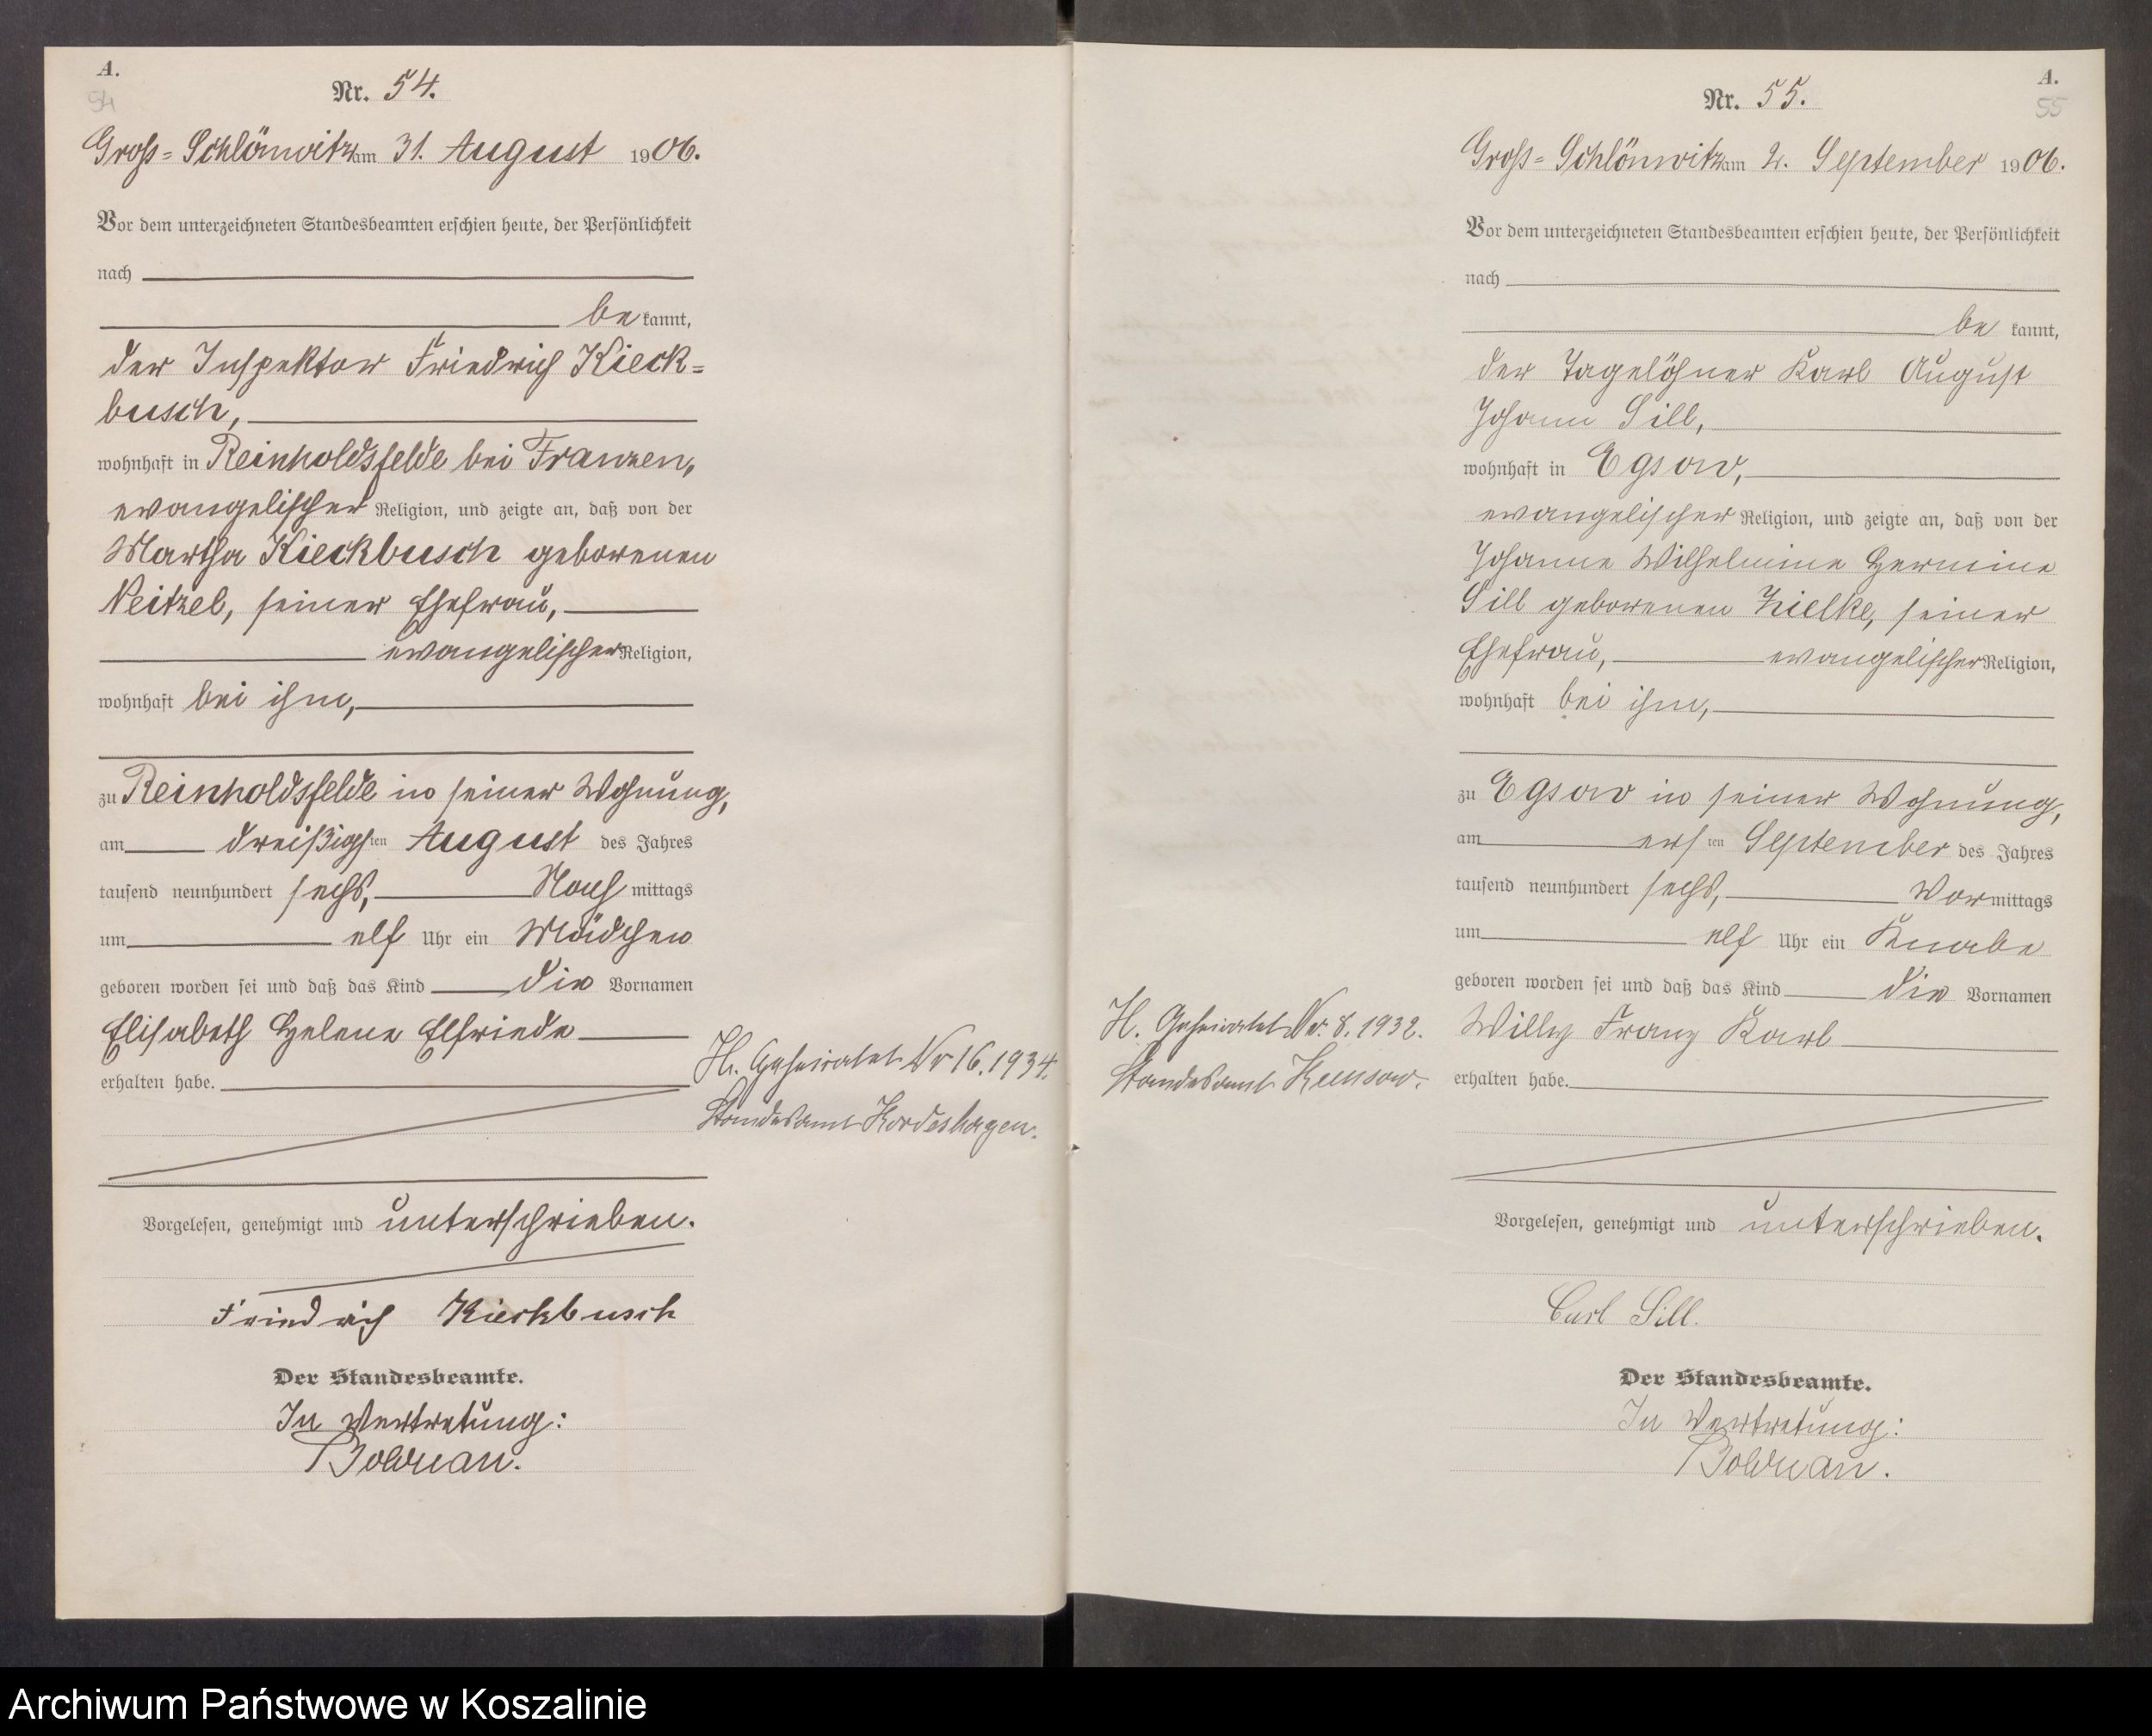 A.
54
Nr. 54.
Groß=Schlönwitz am 31. August 1906.
Vor dem unterzeichneten Standesbeamten erschien heute, der Persönlichkeit
nach
be kannt,
der Inspektor Friedrich Kieck=
busch,
wohnhaft in Reinholdsfelde bei Franzen,
evangelischer Religion, und zeigte an, daß von der
Martha Kieckbusch geborenen
Neitzel, seiner Ehefrau,
evangelischer Religion,
wohnhaft bei ihm,
zu Reinholdsfelde in seiner Wohnung,
am dreißigsten August des Jahres
tausend neunhundert sechs, Nach mittags
um elf Uhr ein Mädchen
geboren worden sei und daß das Kind die Vornamen
Elisabeth Helene Elfriede
erhalten habe.
H. Geheiratet Nr 16. 1934.
Standesamt Kordeshagen.
Vorgelesen, genehmigt und unterschrieben.
Friedrich Kieckbusch
Der Standesbeamte.
In Vertretung:
Bolduan.
A.
55
Nr. 55.
Groß=Schlönwitz am 2. September 1906.
Vor dem unterzeichneten Standesbeamten erschien heute, der Persönlichkeit
nach
be kannt,
der Tagelöhner Karl August
Johann Sill,
wohnhaft in Egsow,
evangelischer Religion, und zeigte an, daß von der
Johanne Wilhelmine Hermine
Sill geborenen Zielke, seiner
Ehefrau, evangelischer Religion,
wohnhaft bei ihm,
zu Egsow in seiner Wohnung,
am ersten September des Jahres
tausend neunhundert sechs, Vor mittags
um elf Uhr ein Knabe
geboren worden sei und daß das Kind die Vornamen
Willy Franz Karl
erhalten habe.
H. Geheiratet Nr. 8. 1932.
Standesamt
Vorgelesen, genehmigt und unterschrieben.
Carl Sill.
Der Standesbeamte.
In Vertretung:
Bolduan.
Archiwum Państwowe w Koszalinie